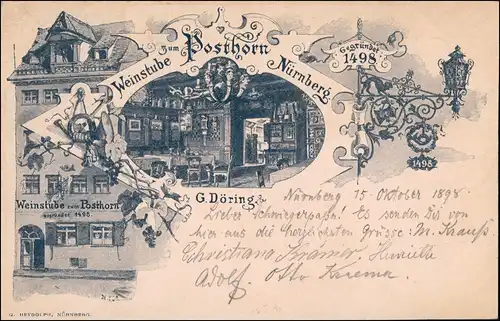 Weinstube zum Posthorn Nürnberg
Gegründet
1498
1498
G. Döring.
Weinstube zum Posthorn
gegründet 1498.
Nürnberg 15 Oktober 1898
Lieber Schwiegerpapa! Es senden Dir von
hier aus die herzlichsten Grüsse: M. Krauss
Christiana Henriette
Adolf. Otto
NÜRNBERG.